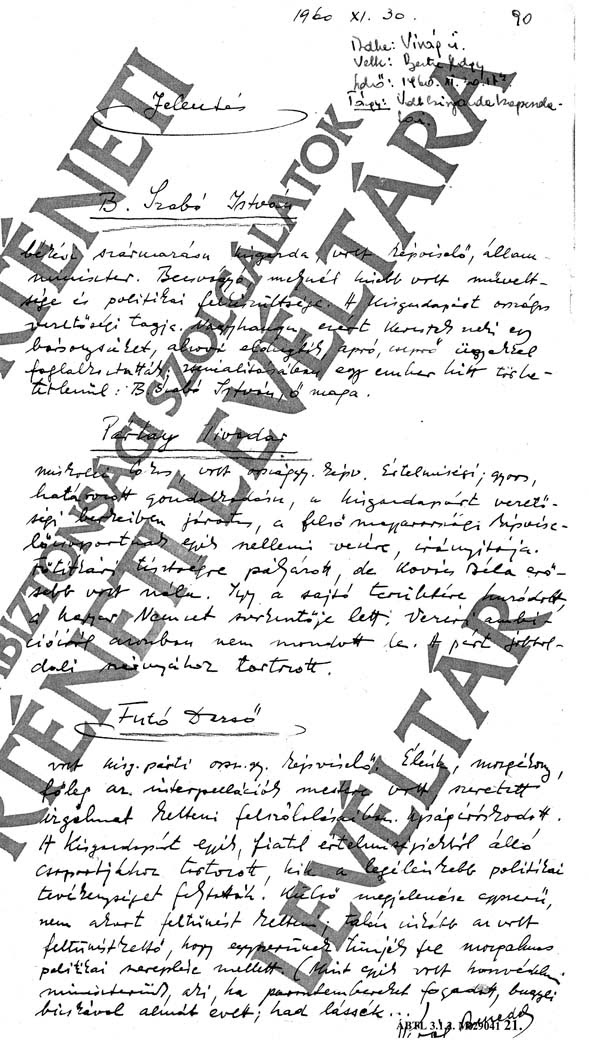 1960 XI. 30.
90
Adta: Virág ü.
Vette: Berta
Idő: 1960. XI. 30.
Tárgy: Volt kisgazda kapcsola-
tai.
Jelentés
B. Szabó István
békési származású kisgazda, volt képviselő, állam-
miniszter. Becsvágya, melynél kisebb volt művelt-
sége és politikai felkészültsége. A Kisgazdapárt országos
vezetőségi tagja. Nagyhangú, ezért kerestek neki egy
bársonyszéket, ahová eldugták apró, cseprő ügyekkel
foglalkoztatták; zsenialitásában egy ember hitt törhe-
tetlenül: B. Szabó István, ő maga.
Pártay Tivadar
miskolci lakos, volt országgy. képv. Értelmiségi; gyors,
határozott gondolkodású, a kisgazdapárt vezető-
ségi berkeiben járatos, a felsőmagyarországi képvise-
lőcsoportnak egyik szellemi vezére, irányítója.
Főtitkári tisztségre pályázott, de Kovács Béla erő-
sebb volt nála. Így a sajtó területére húzódott,
a Magyar Nemzet szerkesztője lett. Vezéri ambí-
cióiról azonban nem mondott le. A párt jobbol-
dali szárnyához tartozott.
Futó Dezső
volt kisg. párti orsz. gy. képviselő. Élénk, mozgékony,
főleg az interpellációk mestere volt szeretett
izgalmat kelteni felszólalásaiban. Újságíróskodott.
A Kisgazdapárt egyik, fiatal értelmiségiekből álló
csoportjához tartozott, kik a legélénkebb politikai
tevékenységet folytatták. Külső megjelenése egyszerű,
nem akart feltűnést kelteni; talán inkább az volt
feltűnéstkeltő, hogy egyszerűnek tűnjék fel mozgalmas
politikai szereplése mellett. (Mint egyik volt honvédelmi
miniszterünk, aki, ha parasztembereket fogadott, bugylibi
bicskával almát evett; had lássék...)
ÁBTL 3.1.2. M-29041 21.
TÖRTÉNETI
ÁLLAMBIZTONSÁGI SZOLGÁLATOK
TÖRTÉNETI LEVÉLTÁRA
LEVÉLTÁRA